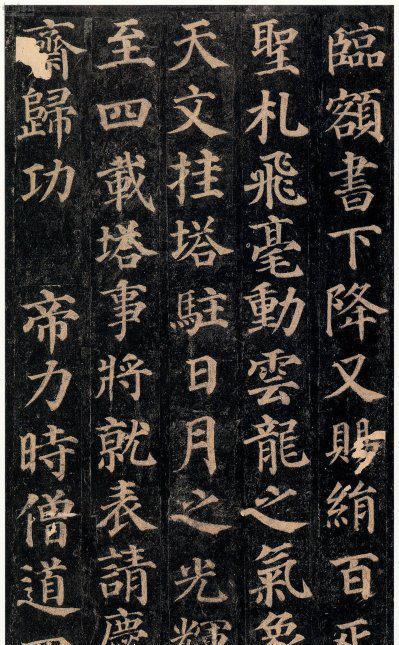 臨額書下降又賜絹百
聖札飛毫動雲龍之氣象
天文挂塔駐日月之光輝
至四載塔事將就表請慶
齋歸功　帝力時僧道四